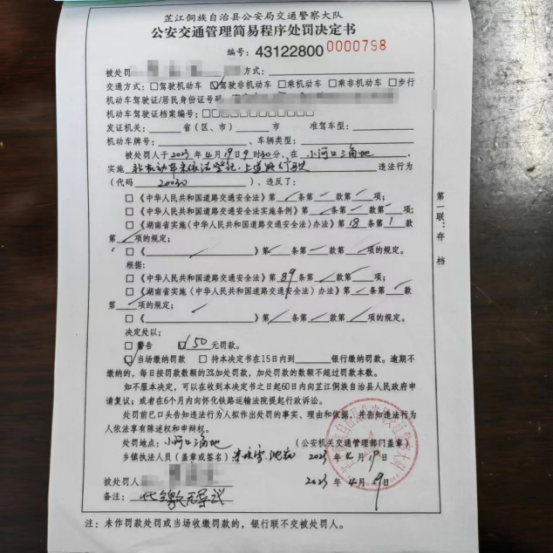 芷江侗族自治县公安局交通警察大队
公安交通管理简易程序处罚决定书
编号：43122800 0000798
被处罚 方式：
交通方式：□驾驶机动车 ☑驾驶非机动车 □乘机动车 □乘非机动车 □步行
机动车驾驶证/居民身份证号码
机动车驾驶证档案编号：
发证机关： 省（区、市） 市 准驾车型：
机动车牌号： 、车辆类型：
被处罚人于2023年4月19日9时30分，在小河口三角地，
实施 非机动车未依法登记，上道路行驶 违法行为
（代码 ），违反了：
□《中华人民共和国道路交通安全法》第 条第 款第 项；
□《中华人民共和国道路交通安全法实施条例》第 条第 款第 项；
□《湖南省实施〈中华人民共和国道路交通安全法〉办法》第18条第1款
第 项的规定；
□《 》第 条第 款第 项的规定。
根据：
□《中华人民共和国道路交通安全法》第89条第 款第 项；
□《湖南省实施〈中华人民共和国道路交通安全法〉办法》第 条第 款
第 项；
□《 》第 条第 款第 项的规定。
决定处以：
□警告 ☑50元罚款。
☑当场缴纳罚款 □持本决定书在15日内到 银行缴纳罚款。逾期不
缴纳的，每日按罚款数额的3%加处罚款，加处罚款的数额不超过罚款本数。
如不服本决定，可以在收到本决定书之日起60日内向芷江侗族自治县人民政府申
请复议；或者在6个月内向怀化铁路运输法院提起行政诉讼。
处罚前已口头告知违法行为人拟作出处罚的事实、理由和依据，并告知违法行为
人依法享有陈述权和申辩权。
处罚地点：小河口三角地 （公安机关交通管理部门盖章）
乡镇执法人员（盖章或签名） 2023年4月19日
被处罚人 2023年4月19日
备注：
注：未作罚款处罚或当场收缴罚款的，银行联不交被处罚人。
第一联：存档